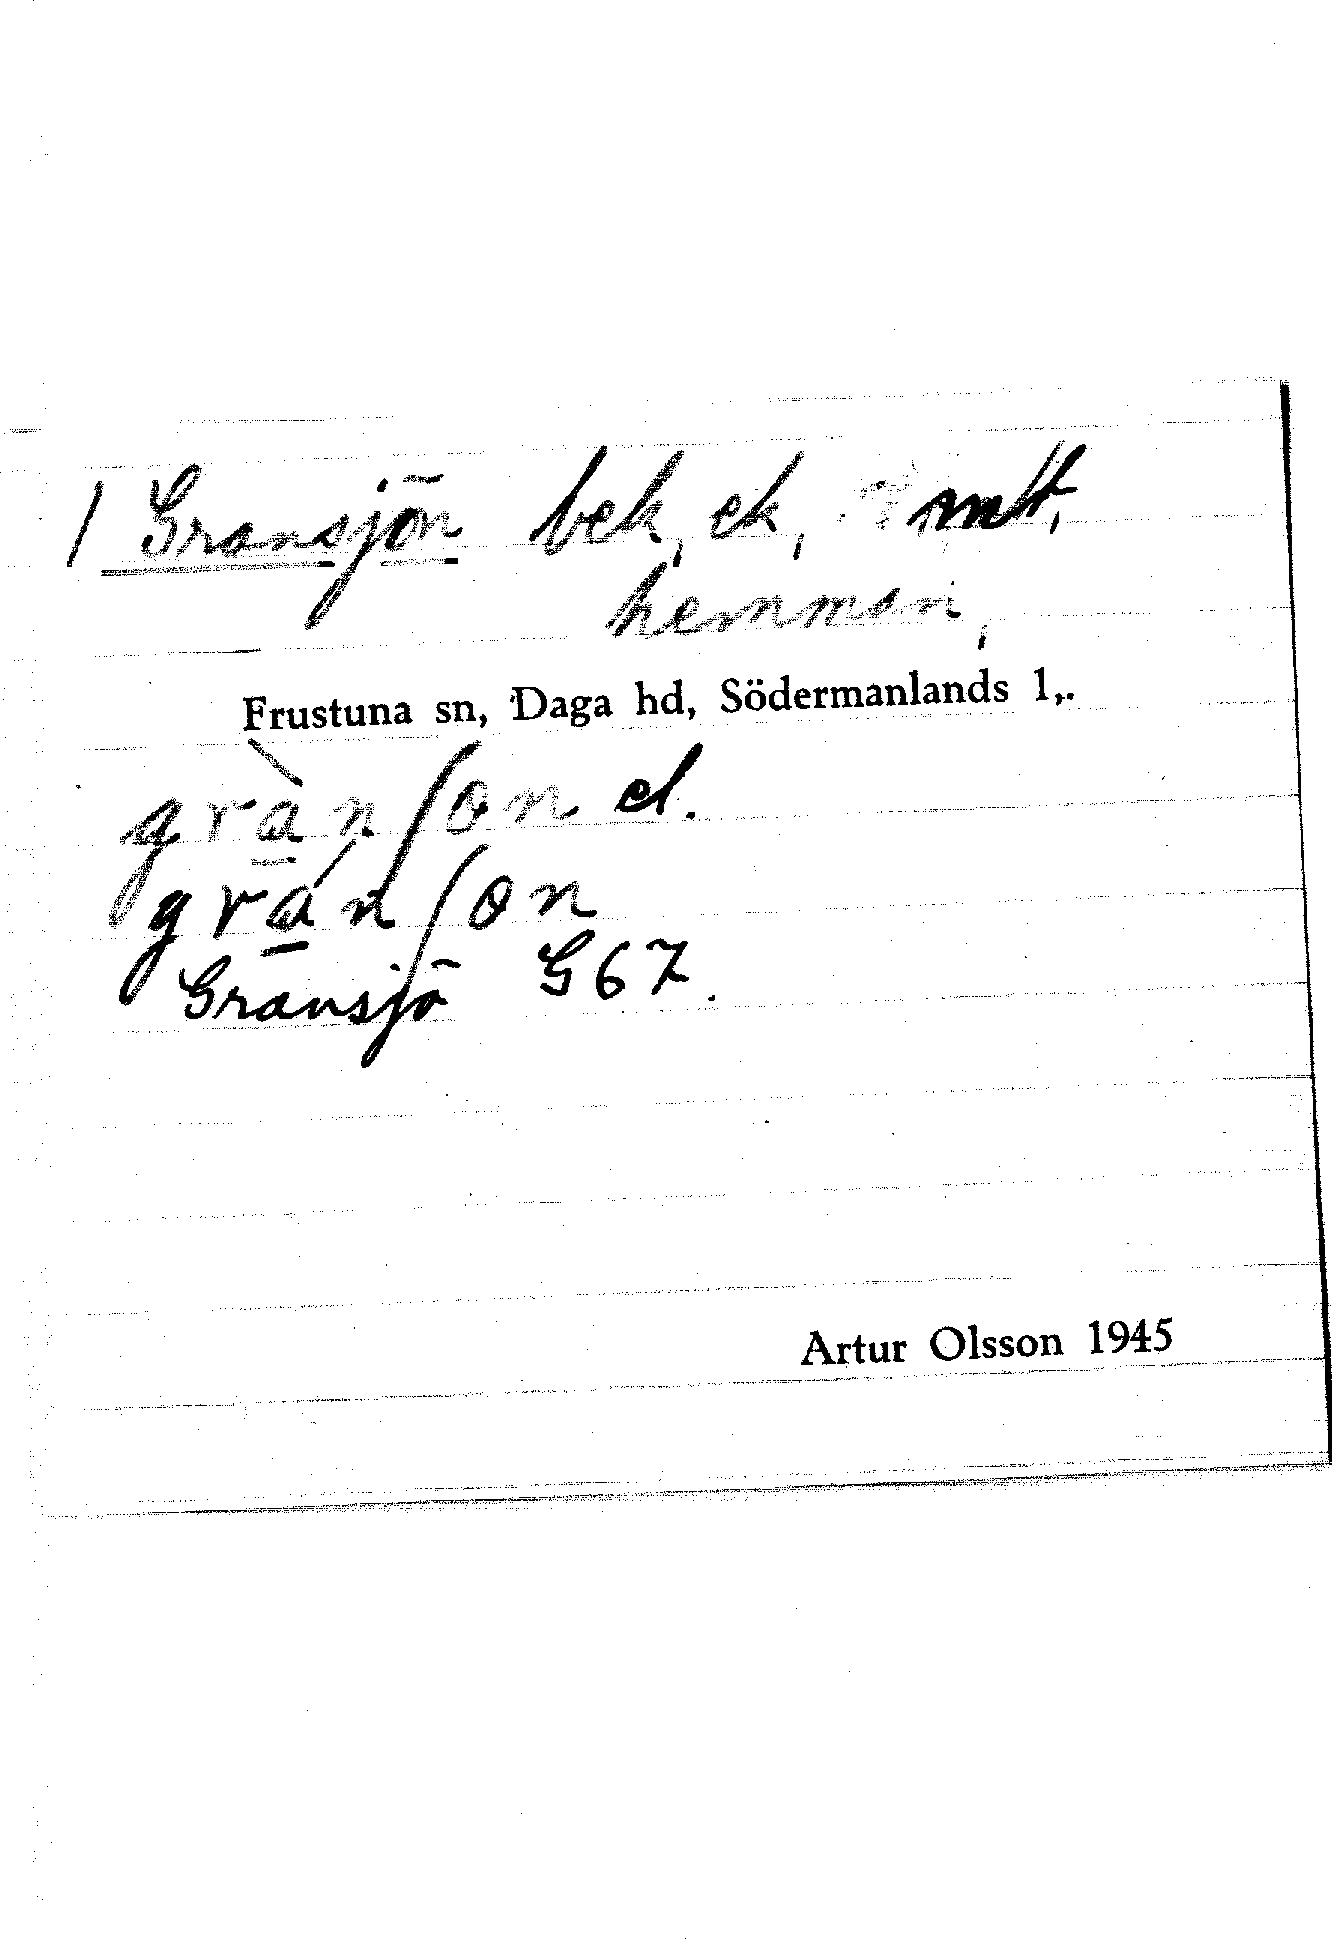 / Gransjön bek, ek, mt,
hemman,
Frustuna sn, Daga hd, Södermanlands l,.
grànʃon el.
gránʃon
Gransjö G67.
Artur Olsson 1945